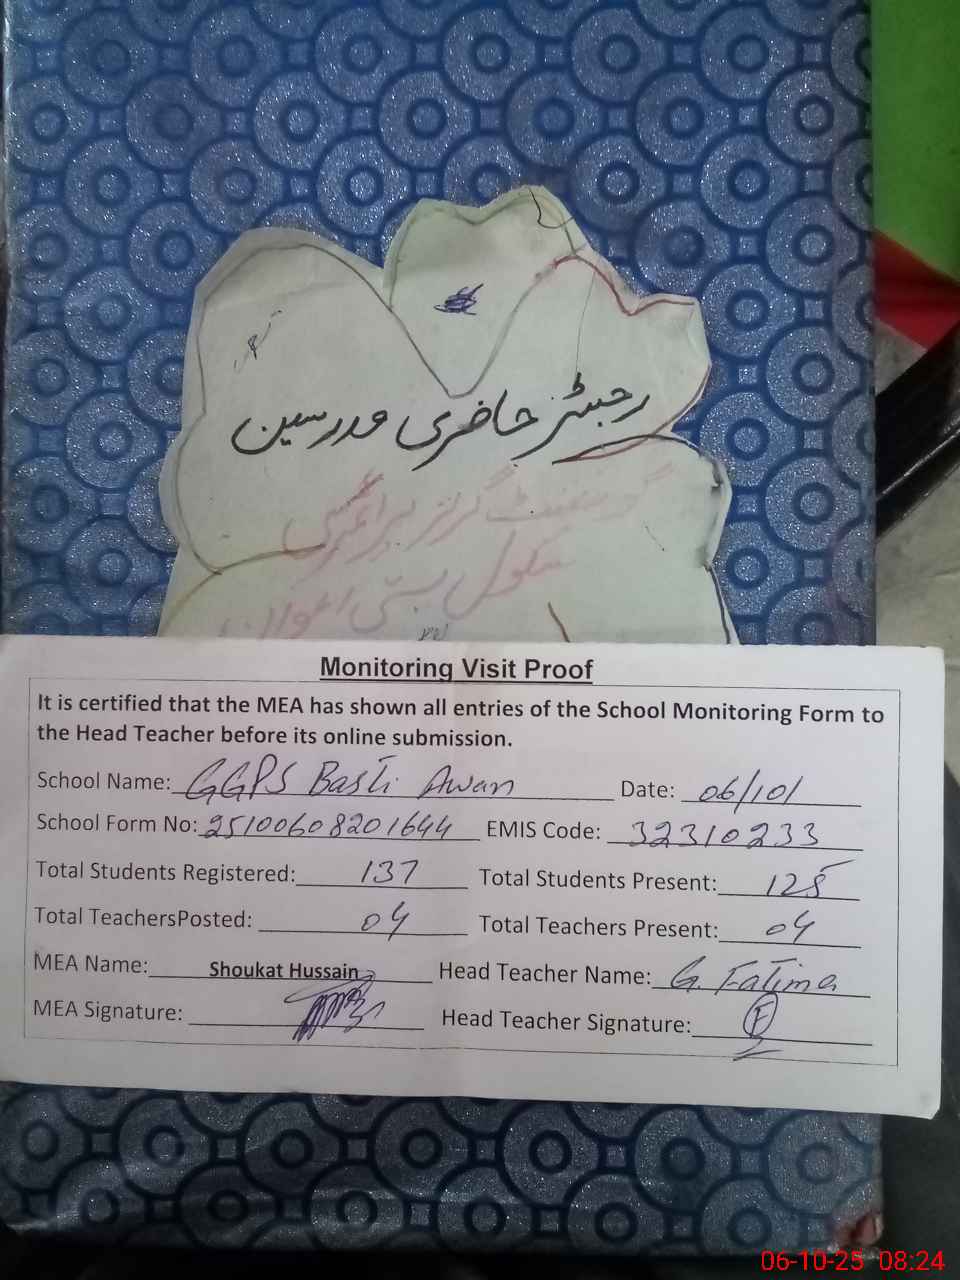 رجسٹر حاضری مدرسین
گورنمنٹ گرلز پرائمری
سکول بستی اعوان
Monitoring Visit Proof
It is certified that the MEA has shown all entries of the School Monitoring Form to
the Head Teacher before its online submission.
School Name: GGPS Basti Awan Date: 06/10/
School Form No: 25100608201644 EMIS Code: 32310233
Total Students Registered: 137 Total Students Present: 125
Total TeachersPosted: 04 Total Teachers Present: 04
MEA Name: Shoukat Hussain Head Teacher Name: G. Fatima
MEA Signature: Head Teacher Signature: F
06-10-25 08:24